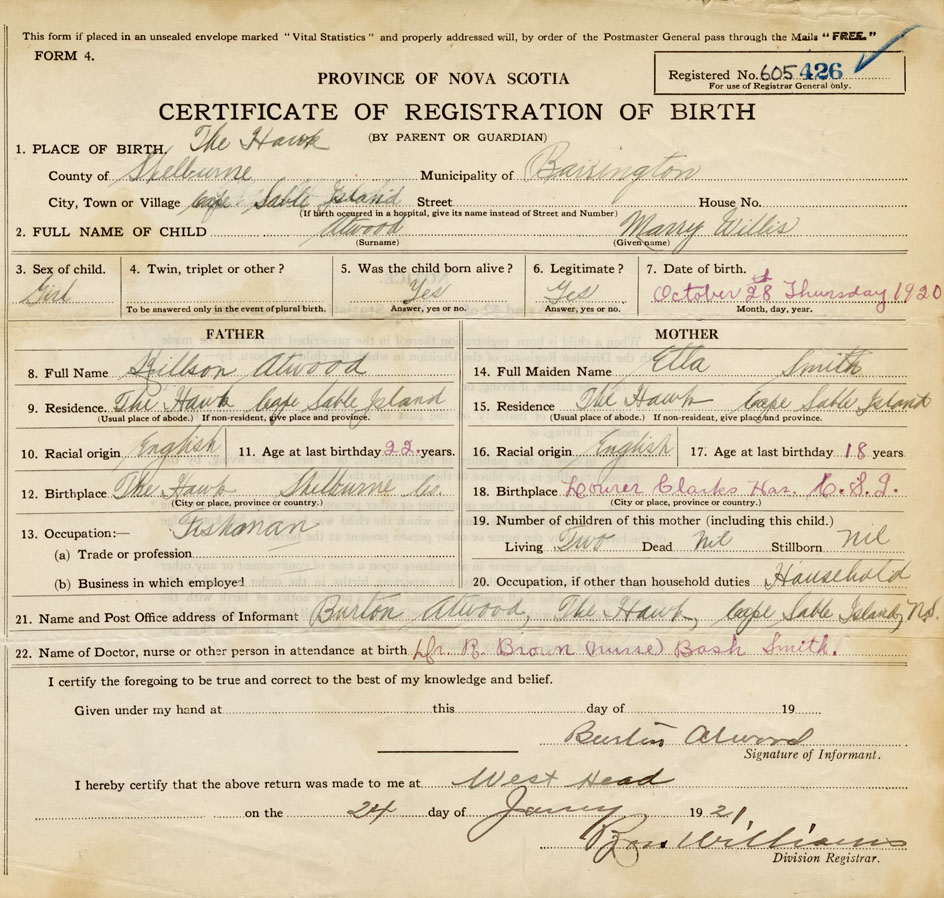 This form if placed in an unsealed envelope marked "Vital Statistics" and properly addressed will, by order of the Postmaster General pass through the Mails "FREE."
FORM 4.
Registered No. 605426
For use of Registrar General only.
PROVINCE OF NOVA SCOTIA
CERTIFICATE OF REGISTRATION OF BIRTH
(BY PARENT OR GUARDIAN)
1. PLACE OF BIRTH. The Hawk
County of Shelburne Municipality of Barrington
City, Town or Village Cape Sable Island Street House No.
(If birth occurred in a hospital, give its name instead of Street and Number)
2. FULL NAME OF CHILD Atwood Marry Willis
(Surname) (Given name)
3. Sex of child. 4. Twin, triplet or other? 5. Was the child born alive? 6. Legitimate? 7. Date of birth.
Girl Yes Yes October 28 Thursday 1920
To be answered only in the event of plural birth. Answer, yes or no. Answer, yes or no. Month, day, year.
FATHER MOTHER
8. Full Name Atwood 14. Full Maiden Name Etta Smith
9. Residence. The Hawk Cape Sable Island 15. Residence The Hawk Cape Sable Island
(Usual place of abode.) If non-resident, give place and province. (Usual place of abode.) If non-resident, give place and province.
10. Racial origin English 11. Age at last birthday 22 years. 16. Racial origin English 17. Age at last birthday 18 years
12. Birthplace The Hawk Shelburne Co. 18. Birthplace Lower Clarks Har. C.S.I.
(City or place, province or country.) (City or place, province or country.)
13. Occupation:— Fishman 19. Number of children of this mother (including this child.)
(a) Trade or profession Living Two Dead Nil Stillborn Nil
(b) Business in which employed 20. Occupation, if other than household duties Household
21. Name and Post Office address of Informant Burton Atwood, The Hawk, Cape Sable Island, N.S.
22. Name of Doctor, nurse or other person in attendance at birth Dr. R. Brown (nurse) Bash Smith.
I certify the foregoing to be true and correct to the best of my knowledge and belief.
Given under my hand at this day of 19
Burton Atwood
Signature of Informant.
I hereby certify that the above return was made to me at West Head
on the 24 day of Jany 1921
Williams
Division Registrar.